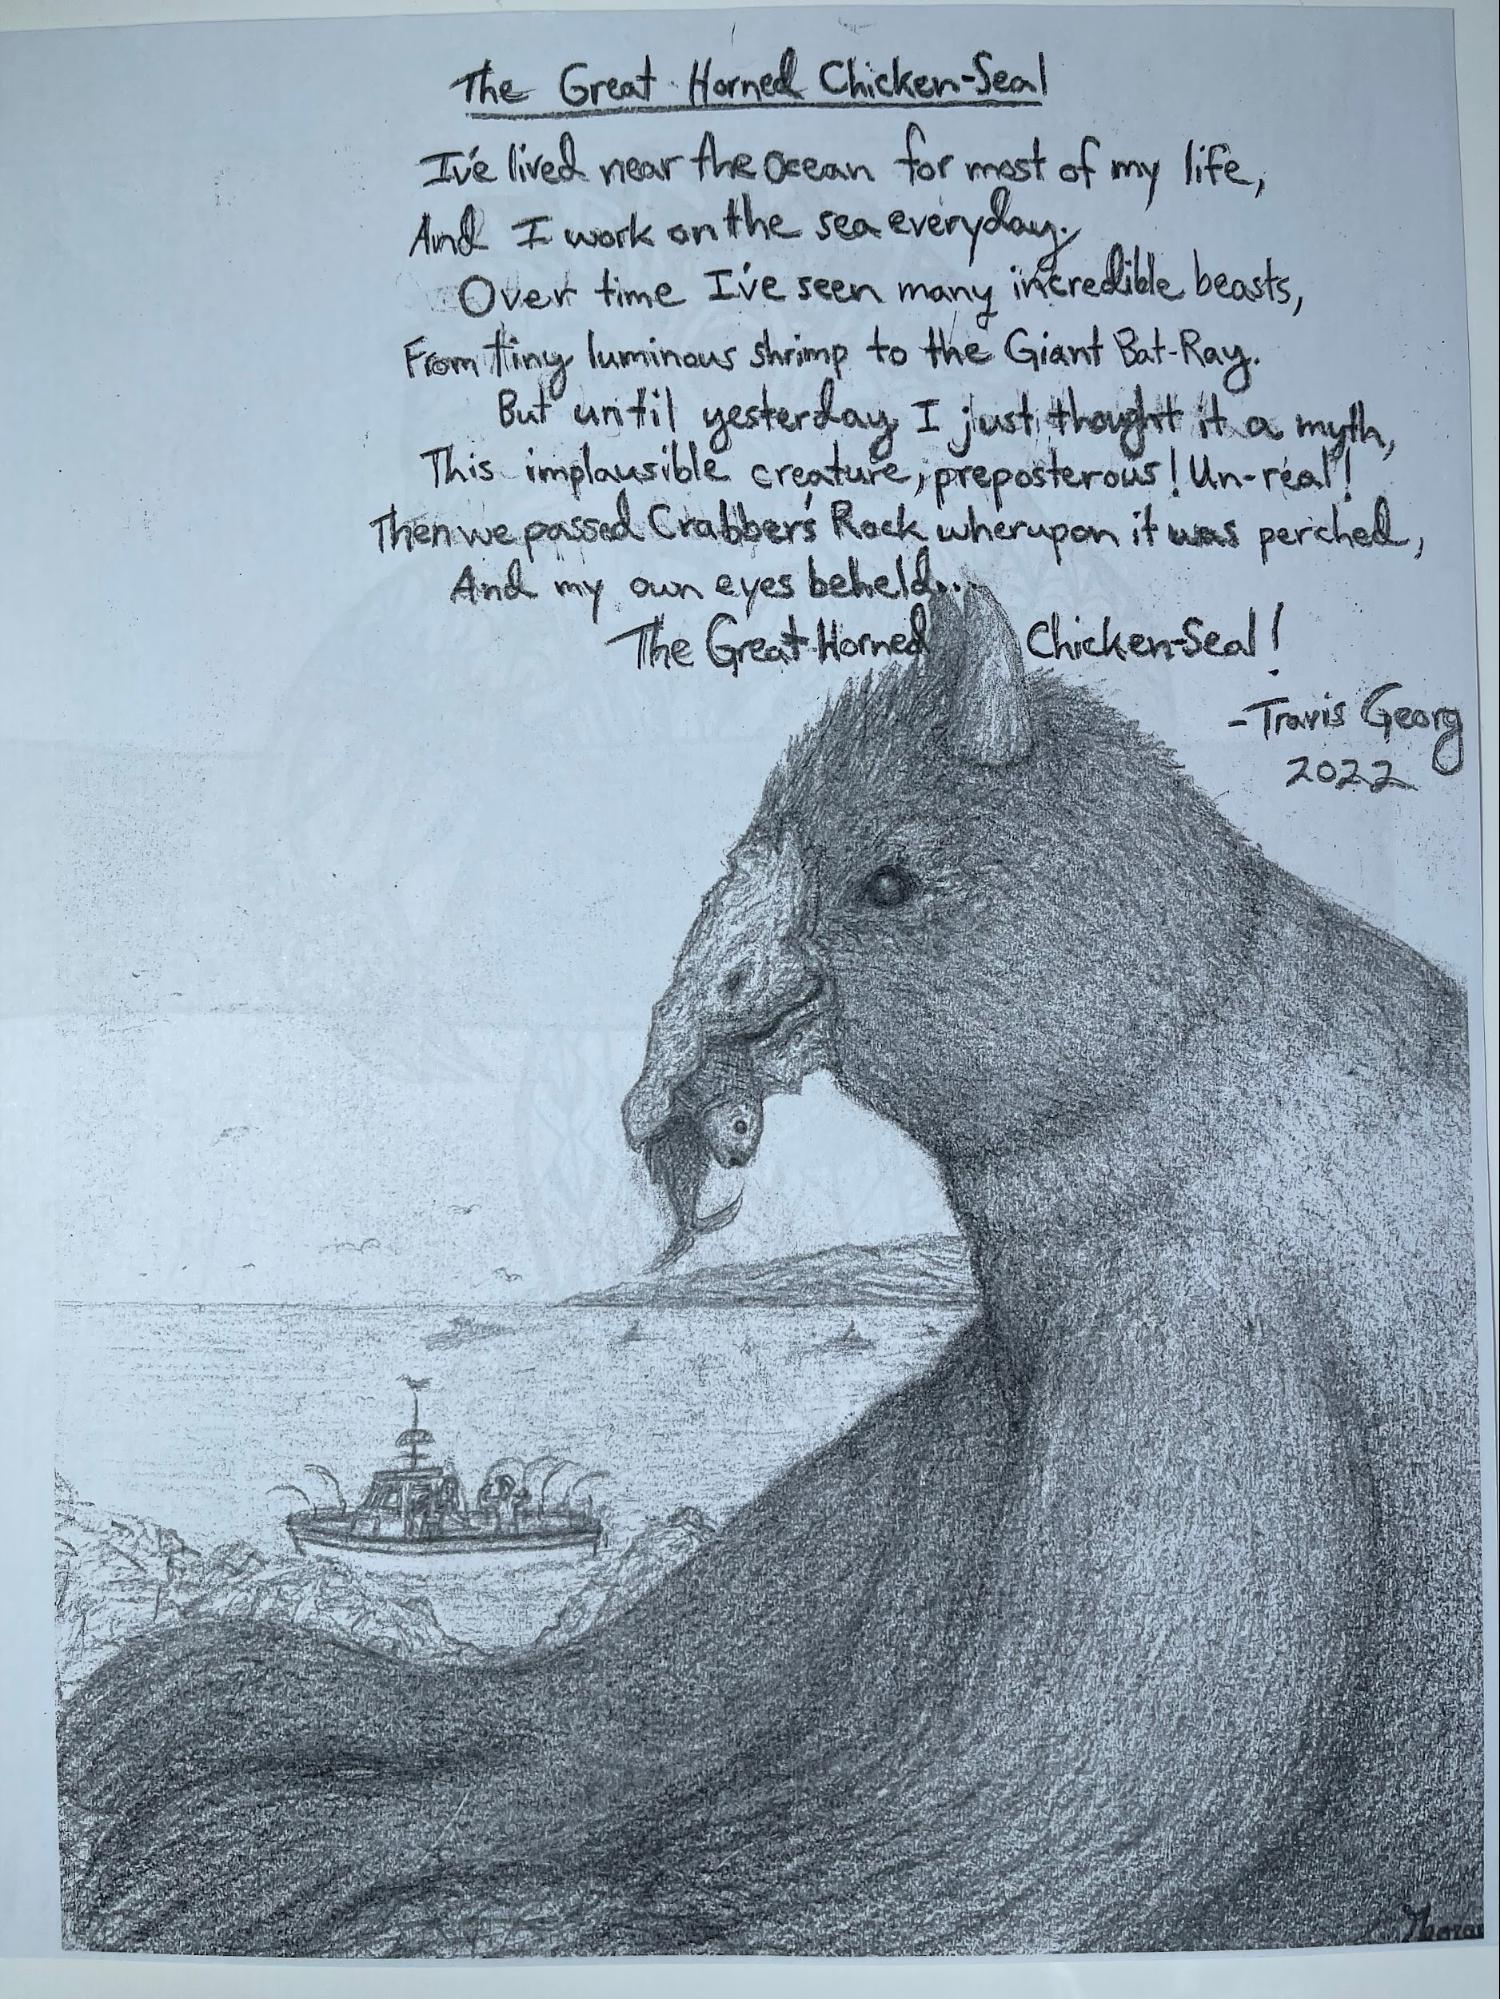 The Great Horned Chicken-Seal
I've lived near the ocean for most of my life,
And I work on the sea everyday.
Over time I've seen many incredible beasts,
From tiny luminous shrimp to the Giant Bat-Ray.
But until yesterday I just thought it a myth,
This implausible creature, preposterous! Un-real!
Then we passed Crabber's Rock wherupon it was perched,
And my own eyes beheld...
The Great Horned Chicken-Seal!
-Travis Georg
2022